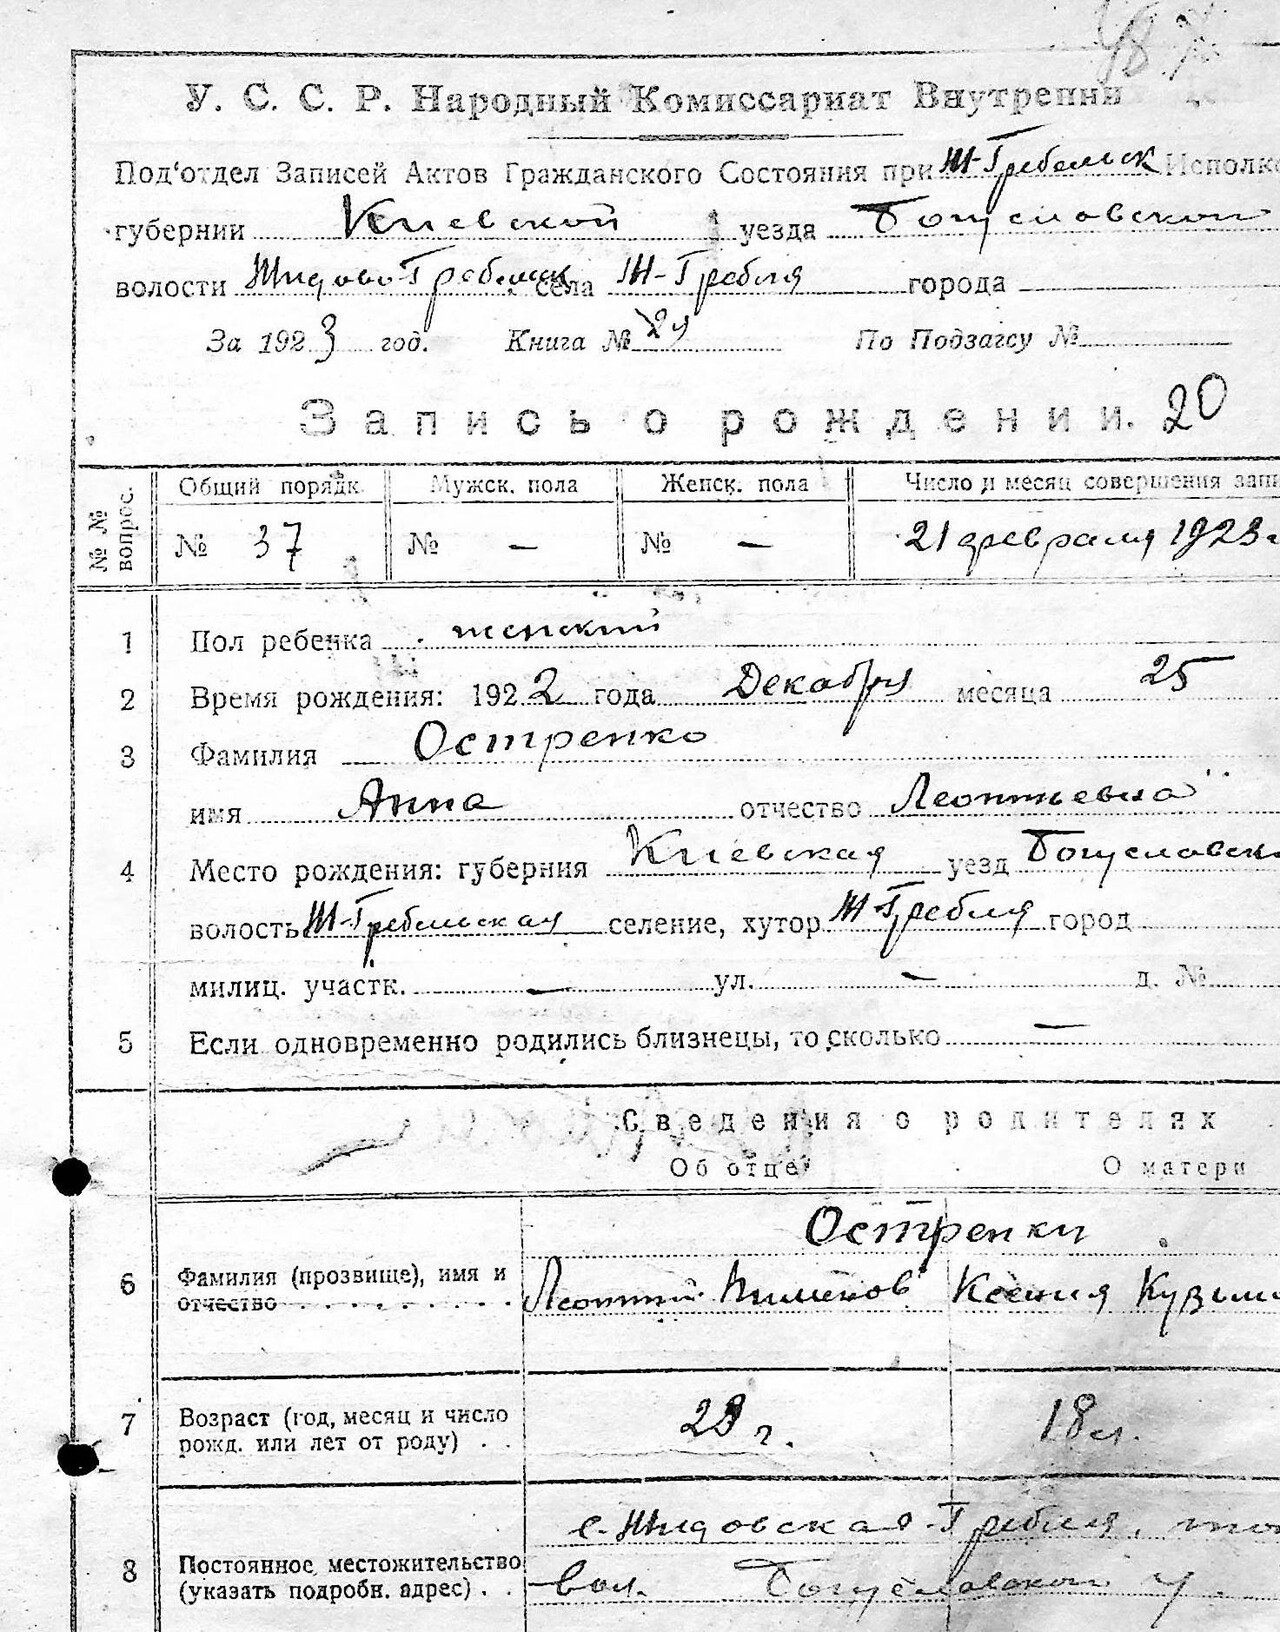 У. С. С. Р. Народный Комиссариат Внутренни
Под'отдел Записей Актов Гражданского Состояния при Ж-Гребельск Исполко
губернии Киевской уезда Богуславского
волости Жидово-Гребельск села Ж-Гребля города
За 1923 год. Книга № По Подзагсу №
Запись о рождении. 20
№№ вопрос. Общий порядк. Мужск. пола Женск. пола Число и месяц совершения запи
№ 37 № — № — 21 февраля 1923 г
1 Пол ребенка женский
2 Время рождения: 1922 года Декабря месяца 25
3 Фамилия Остренко
имя Анна отчество Леонтьевна
4 Место рождения: губерния Киевская уезд Богуславск
волость Ж-Гребельская селение, хутор Ж-Гребля город
милиц. участк. — ул. — д. №
5 Если одновременно родились близнецы, то сколько —
Сведения о родителях
Об отце О матери
Остренки
6 Фамилия (прозвище), имя и отчество Леонтий Пименов Ксения Кузьми
7 Возраст (год, месяц и число рожд. или лет от роду) 28 г. 18 л.
с. Жидовская-Гребля, той
8 Постоянное местожительство (указать подробн. адрес) вол. Богуславского у.